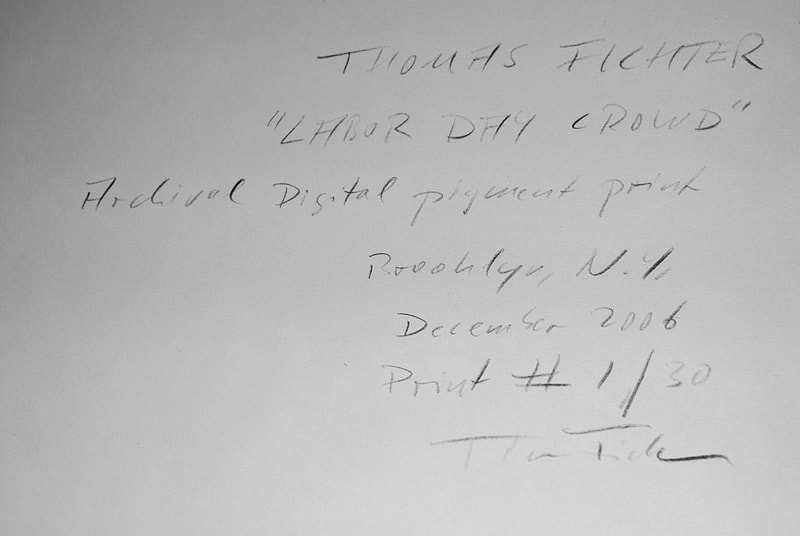 THOMAS FICHTER
"LABOR DAY CROWD"
Archival Digital pigment print
Brooklyn, N.Y.
December 2006
Print # 1/30